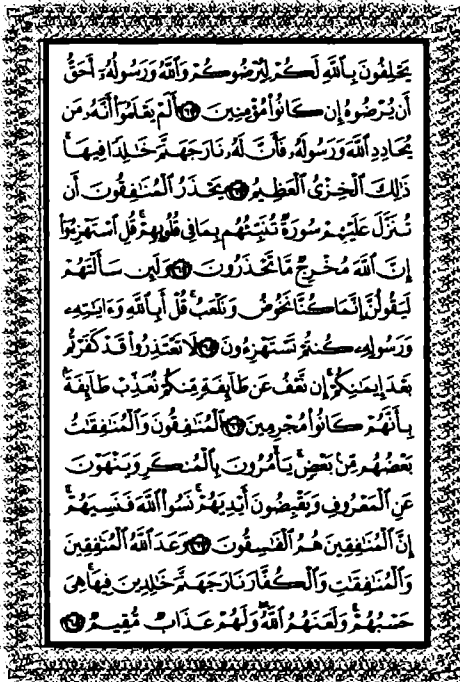 يَحْلِفُونَ بِٱللَّهِ لَكُمْ لِيُرْضُوكُمْ وَٱللَّهُ وَرَسُولُهُۥٓ أَحَقُّ
أَن يُرْضُوهُ إِن كَانُوا۟ مُؤْمِنِينَ ٦٢ أَلَمْ يَعْلَمُوٓا۟ أَنَّهُۥ مَن
يُحَادِدِ ٱللَّهَ وَرَسُولَهُۥ فَأَنَّ لَهُۥ نَارَ جَهَنَّمَ خَٰلِدًا فِيهَا ۚ
ذَٰلِكَ ٱلْخِزْىُ ٱلْعَظِيمُ ٦٣ يَحْذَرُ ٱلْمُنَٰفِقُونَ أَن
تُنَزَّلَ عَلَيْهِمْ سُورَةٌ تُنَبِّئُهُم بِمَا فِى قُلُوبِهِمْ ۚ قُلِ ٱسْتَهْزِءُوٓا۟
إِنَّ ٱللَّهَ مُخْرِجٌ مَّا تَحْذَرُونَ ٦٤ وَلَئِن سَأَلْتَهُمْ
لَيَقُولُنَّ إِنَّمَا كُنَّا نَخُوضُ وَنَلْعَبُ ۚ قُلْ أَبِٱللَّهِ وَءَايَٰتِهِۦ
وَرَسُولِهِۦ كُنتُمْ تَسْتَهْزِءُونَ ٦٥ لَا تَعْتَذِرُوا۟ قَدْ كَفَرْتُم
بَعْدَ إِيمَٰنِكُمْ ۚ إِن نَّعْفُ عَن طَآئِفَةٍ مِّنكُمْ نُعَذِّبْ طَآئِفَةًۢ
بِأَنَّهُمْ كَانُوا۟ مُجْرِمِينَ ٦٦ ٱلْمُنَٰفِقُونَ وَٱلْمُنَٰفِقَٰتُ
بَعْضُهُم مِّنۢ بَعْضٍ ۚ يَأْمُرُونَ بِٱلْمُنكَرِ وَيَنْهَوْنَ
عَنِ ٱلْمَعْرُوفِ وَيَقْبِضُونَ أَيْدِيَهُمْ ۚ نَسُوا۟ ٱللَّهَ فَنَسِيَهُمْ ۗ
إِنَّ ٱلْمُنَٰفِقِينَ هُمُ ٱلْفَٰسِقُونَ ٦٧ وَعَدَ ٱللَّهُ ٱلْمُنَٰفِقِينَ
وَٱلْمُنَٰفِقَٰتِ وَٱلْكُفَّارَ نَارَ جَهَنَّمَ خَٰلِدِينَ فِيهَا ۚ هِىَ
حَسْبُهُمْ ۚ وَلَعَنَهُمُ ٱللَّهُ ۖ وَلَهُمْ عَذَابٌ مُّقِيمٌ ٦٨